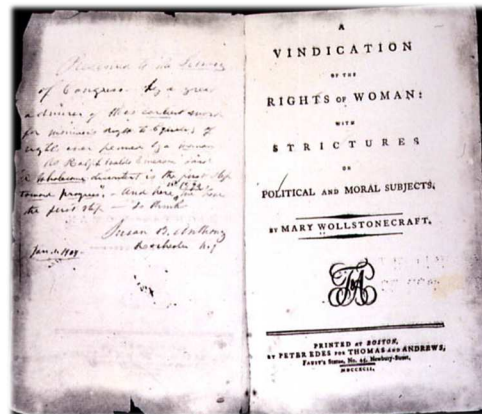 Presented to the Library
of Congress by a great
admirer of this earliest
for woman's right to Equality of
rights ever penned by a woman
As Ralph Waldo Emerson said
"A Wholesome discontent is the first step
toward progress" - And here in 1792 we have
the first step -
Susan B. Anthony
Rochester N.Y.
A
VINDICATION
OF THE
RIGHTS OF WOMAN:
WITH
STRICTURES
ON
POLITICAL AND MORAL SUBJECTS,
BY MARY WOLLSTONECRAFT.
PRINTED AT BOSTON,
BY PETER EDES FOR THOMAS AND ANDREWS,
FAUST'S Statue, No. 45, Newbury-Street,
MDCCXCII.